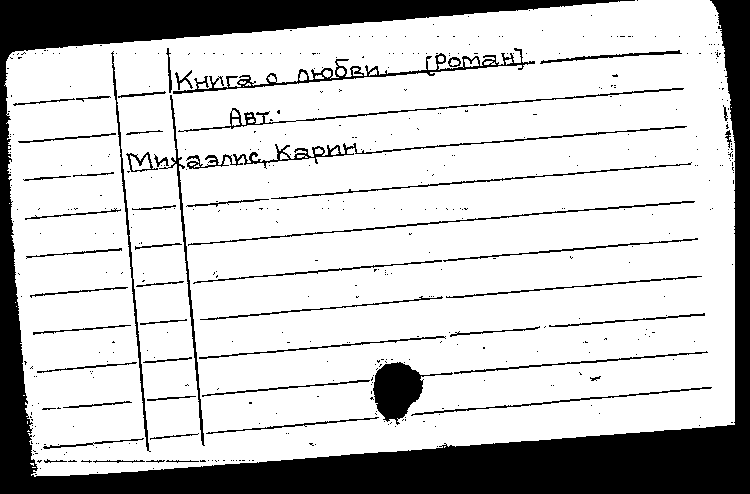 Книга о любви. [Роман].
Авт.:
Михаэлис, Карин.